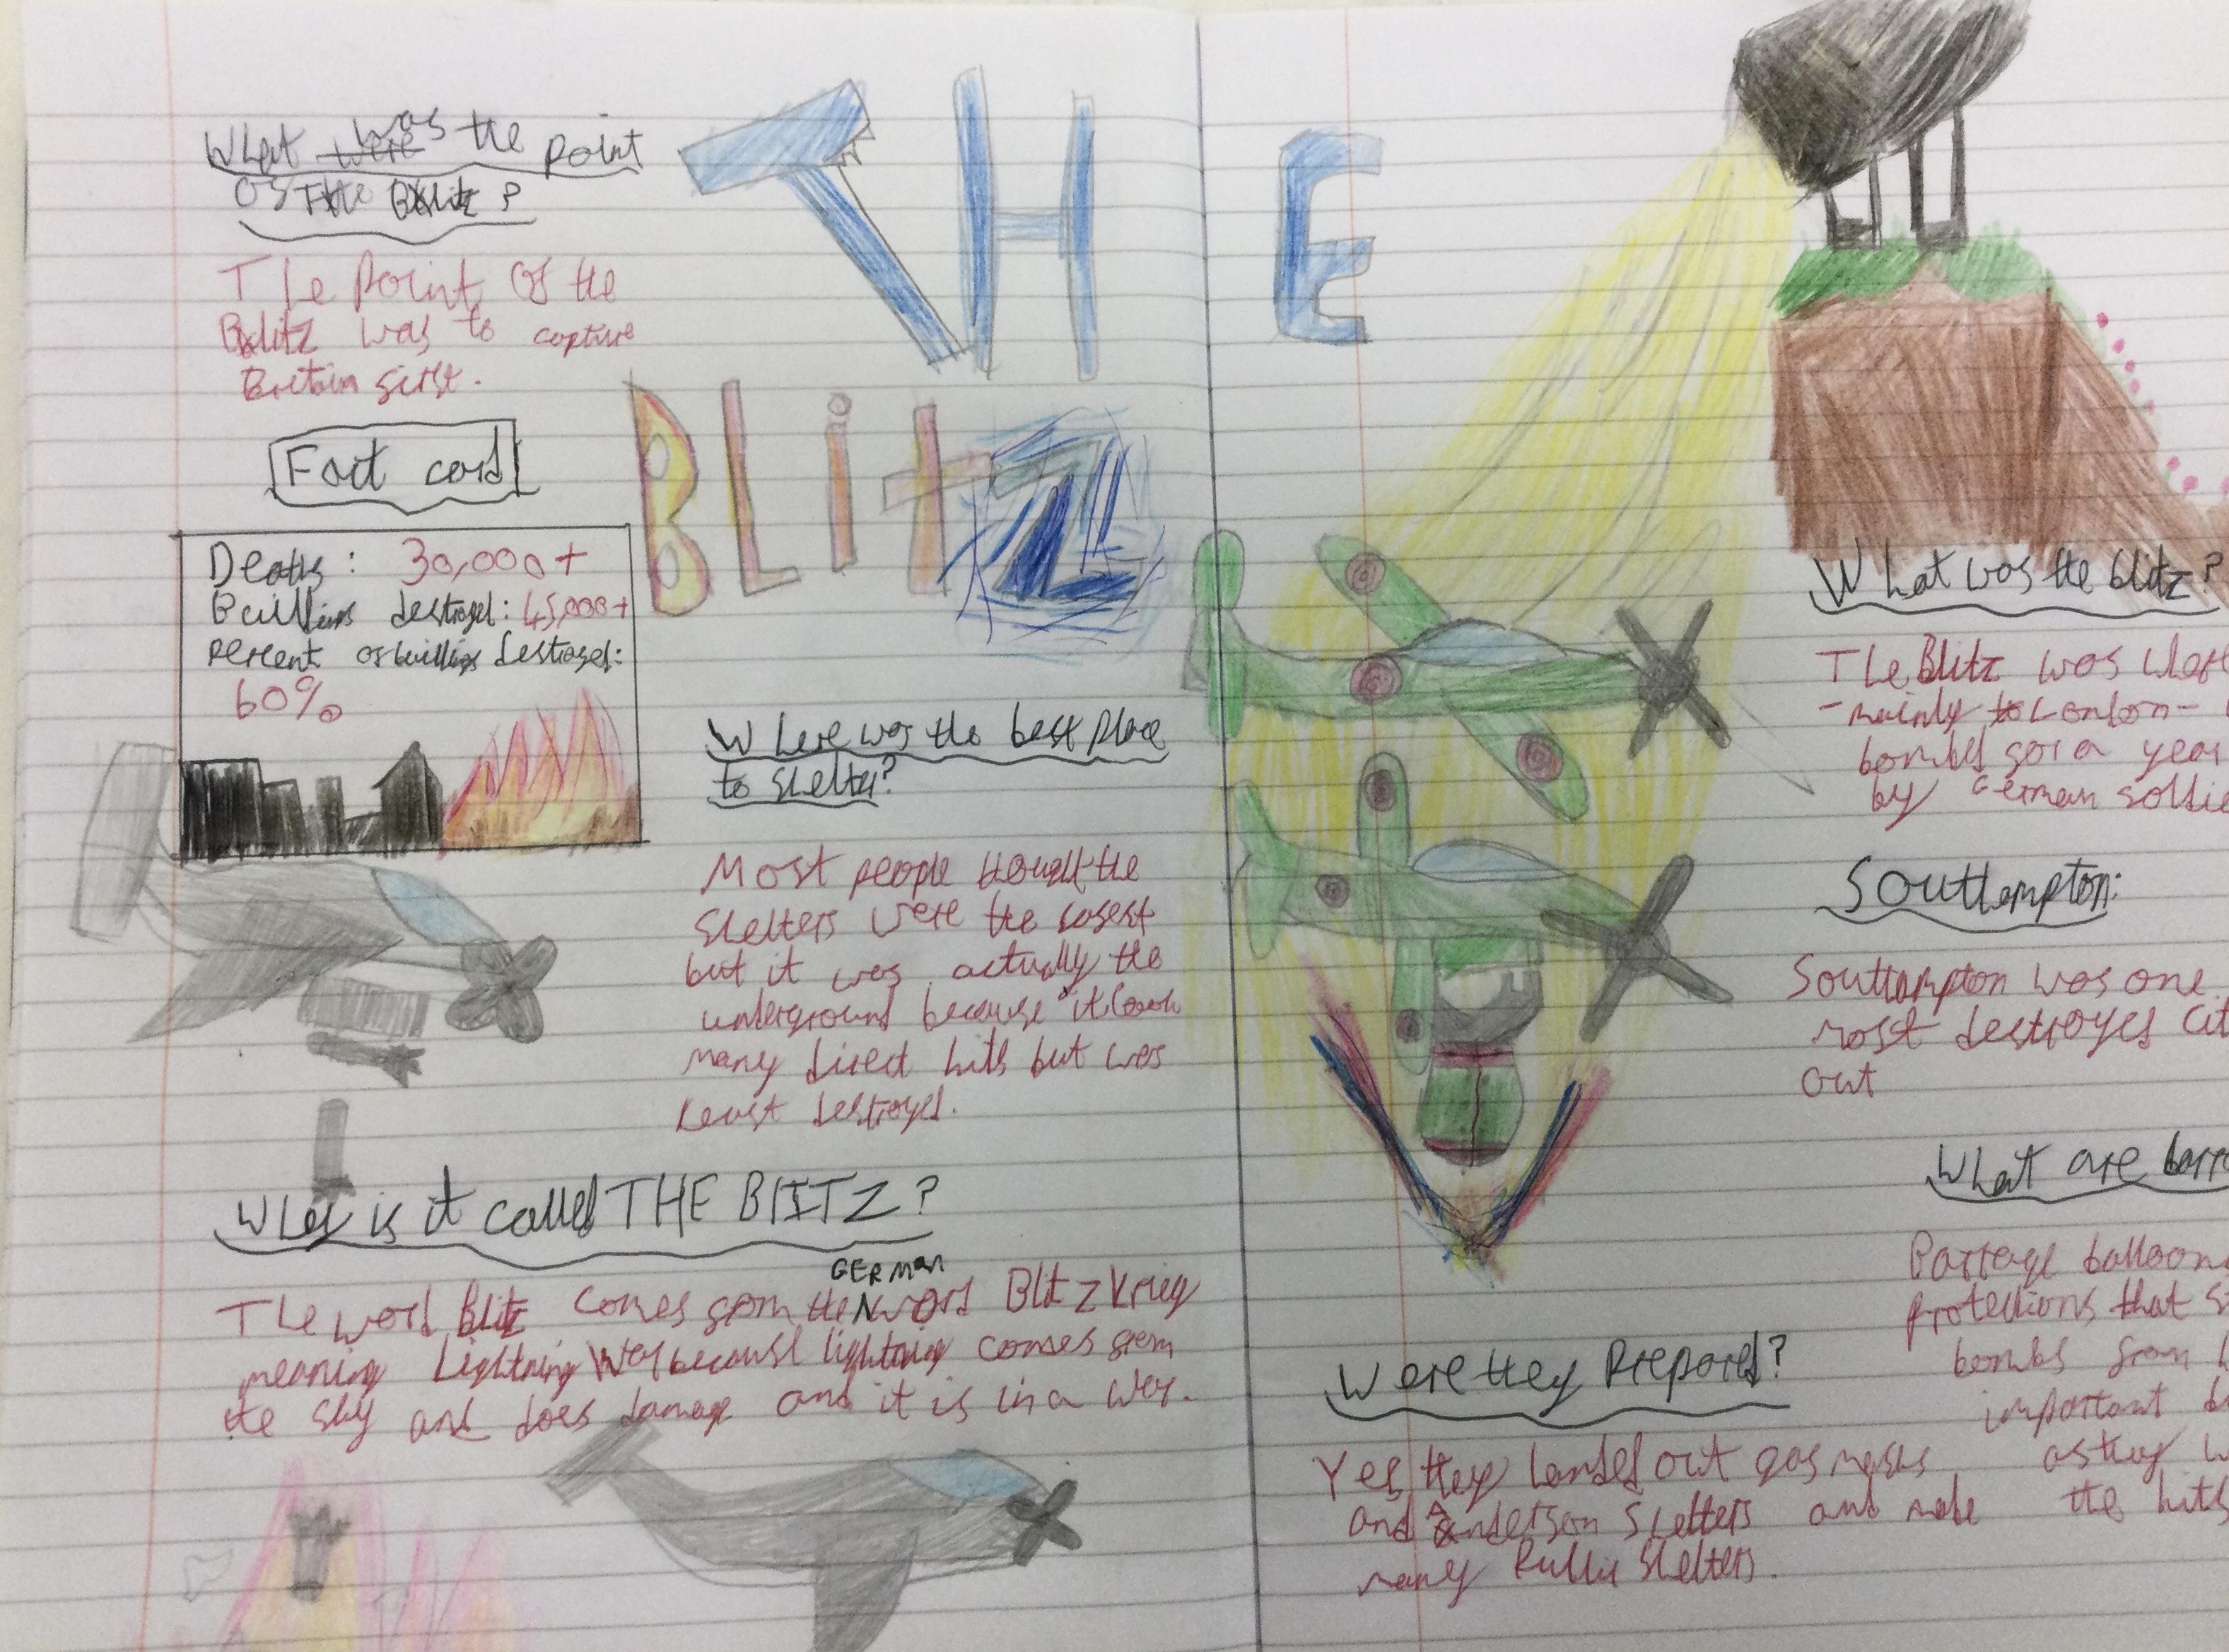 What was the point
of The Blitz?
The point of the
Blitz was to capture
Britain first.
Fact card
Deaths: 30,000+
Buildings destroyed: 45,000+
percent of buildings destroyed:
60%
THE
BLitZ
Where was the best place
to shelter?
Most people thought the
shelters were the safest
but it was actually the
underground because it took
many direct hits but was
least destroyed.
Why is it called THE BLITZ?
GERMAN
The word Blitz comes from the word Blitzkrieg
meaning Lightning War because lightning comes from
the sky and does damage and it is in a way.
What was the blitz?
The Blitz was when
-mainly London-
bombed for a year
by German soldie
Southampton:
Southampton was one
most destroyed cit
out
What are barra
Barrage balloon
protections that s
bombs from
important b
as they w
the hits
Were they Prepared?
Yes, they handed out gas masks
and Anderson Shelters and made
many Public Shelters.